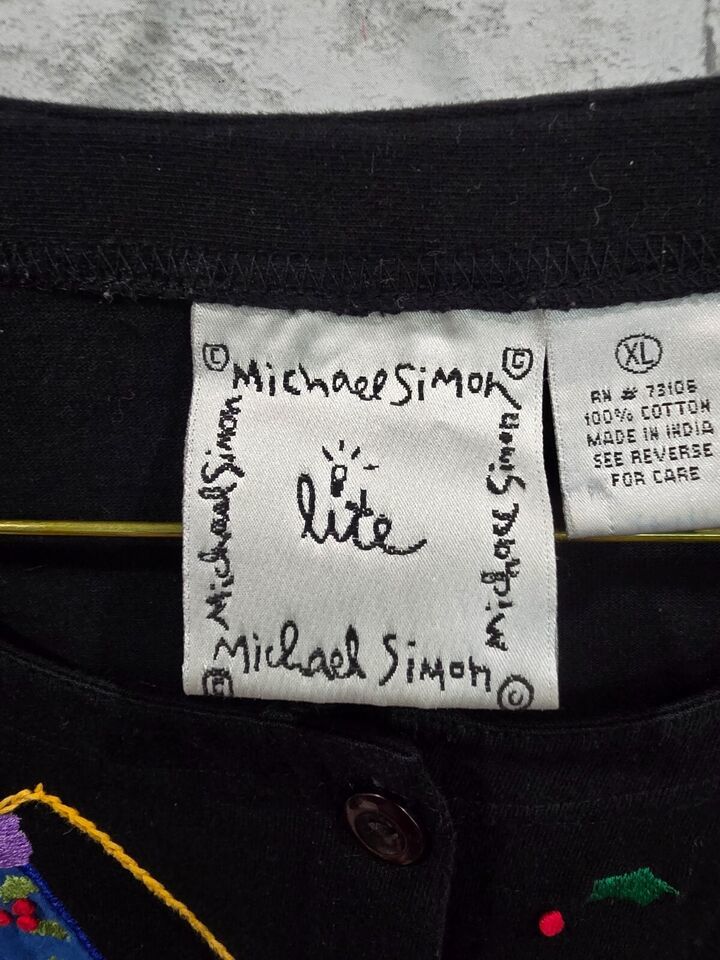 © Michael Simon ©
Michael Simon
Michael Simon
lite
Michael Simon ©
XL
RN # 73106
100% COTTON
MADE IN INDIA
SEE REVERSE
FOR CARE